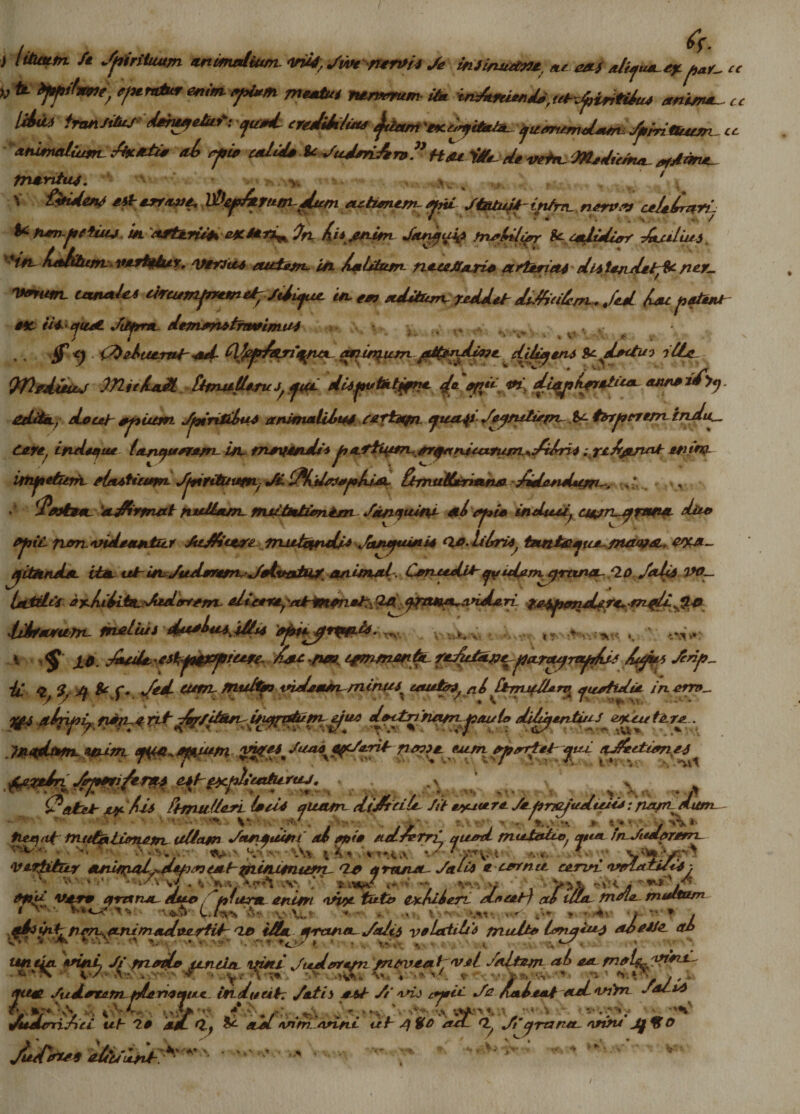 65.
lituum se spirituum animalium viis, sive nervis se insinuare, ac eas aliqua ex par_ cc
te oppilare, operatur enim opium meatus nervorum ita inficiendo, ut spiritibus anima_ cc
libus transitus denegetur: quod credibilius quam excogitata quorumdam spirituum cc
animalium fixatio ab opio calido & sudorifero." Hæc ille de vera Medicina optime
meritus.
Evidens est errare Wepferum dum actionem opii statuit infra nervos celebrari,
& non potius in arteriis exteri, In his enim sanguis mobilior & calidior facilius
in halitum vertitur. Versus autem in halitum necessario arterias distendet, & ner_
vorum canales circumpremet, sibique in eos aditum reddet difficilem. sed hæc patent
ex iis quæ supra demonstravimus
§ 9 Debuerat ad Wepferi animum attendere diligens & doctus ille
Medicus Michaël Etmullerus, qui disputatione de opii vi diaphoretica anno 1679.
edita, docet opium spiritibus animalibus certam quasi segnitiem & torporem indu_
cere, indeque languorem in movendis partium organicarum fibris; refrænat enim
impetum elasticum spirituum, si Philosophiæ Etmulleriana fidendum.
Postea affirmat nullam mutationem sanguini ab opio induci, cum grana duo
opii non videantur sufficere mutandis sanguinis 20. libris, tantoque magis exa_
gitanda ita ut in sudorem solvatur animal. Concedit quidem grana 20 salis vo_
latilis exhibita sudorem elicere, at monet 20 grana videri respondere moli 20
librarum melius duobus illis opii granis.
§ 10. facile est perspicere hæc non commenta refutare paragraphis hujus scrip_
ti 2, 3, 4 & 5. sed cum multos videam minus cautos, ab Etmullero quotidie in erro_
res abripi, non erit forsitan ingratum ejus doctrinam paulo diligentius excutere.
nondum enim qua opium vires suas exserit nosse eum oportet qui affectiones
soporiferas est explicaturus.
Patet ex his Etmulleri locis quam difficile sit exuere se præjudiciis: nam dum
negat mutationem ullam sanguini ab opio adferri, quod mutatio, qua in sudorem
vertitur animal, deposcat minimum 20 grana salis e cornu cervi volatilis;
opii vero grana duo (plura enim vix tuto exhiberi docet) ab illa mole multum
absint, non animadvertit 20 illa grana salis volatilis multo longius abesse ab
uncia vini, si modo uncia vini sudorem moveat, vel saltem ab ea mole vini
quæ sudorem plerisque inducit. satis est si vis opii se habeat ad vim salis
sudorifici ut 20 ad 2, & ad vim vini ut 480 ad 2, si grana vini 480
sudores eliciunt.